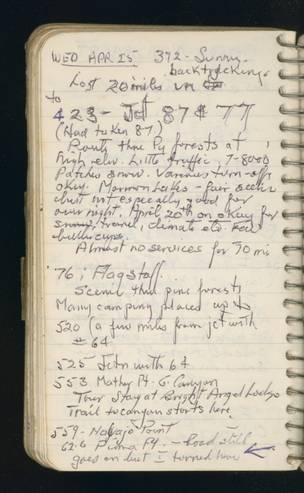 WED APR 15 392 - Sunny.
backtracking.
Lost 20 miles
to
423 - Jct 87 & 77
(Had to take 87)
Route thru Py forests at
high elev. Little traffic, 7-8000
Patches snow. Various turn-offs
okay. Mormon Lakes - fair scene
but not especially good for
over night. April 20th on okay for
travel, climate etc. Few
Almost no services for 70 mi
76; Flagstaff.
Scenic thru pine forests
Many camping places up to
520 (a few miles from jct with
# 64
525 Jctn with 64
553 Mather Pt. G Canyon
Tour Stay at Bright Angel Lodge
Trail to canyon starts here
559 - Navajo Point
62.6 Pima Pt. - Road still
goes on but I turned here